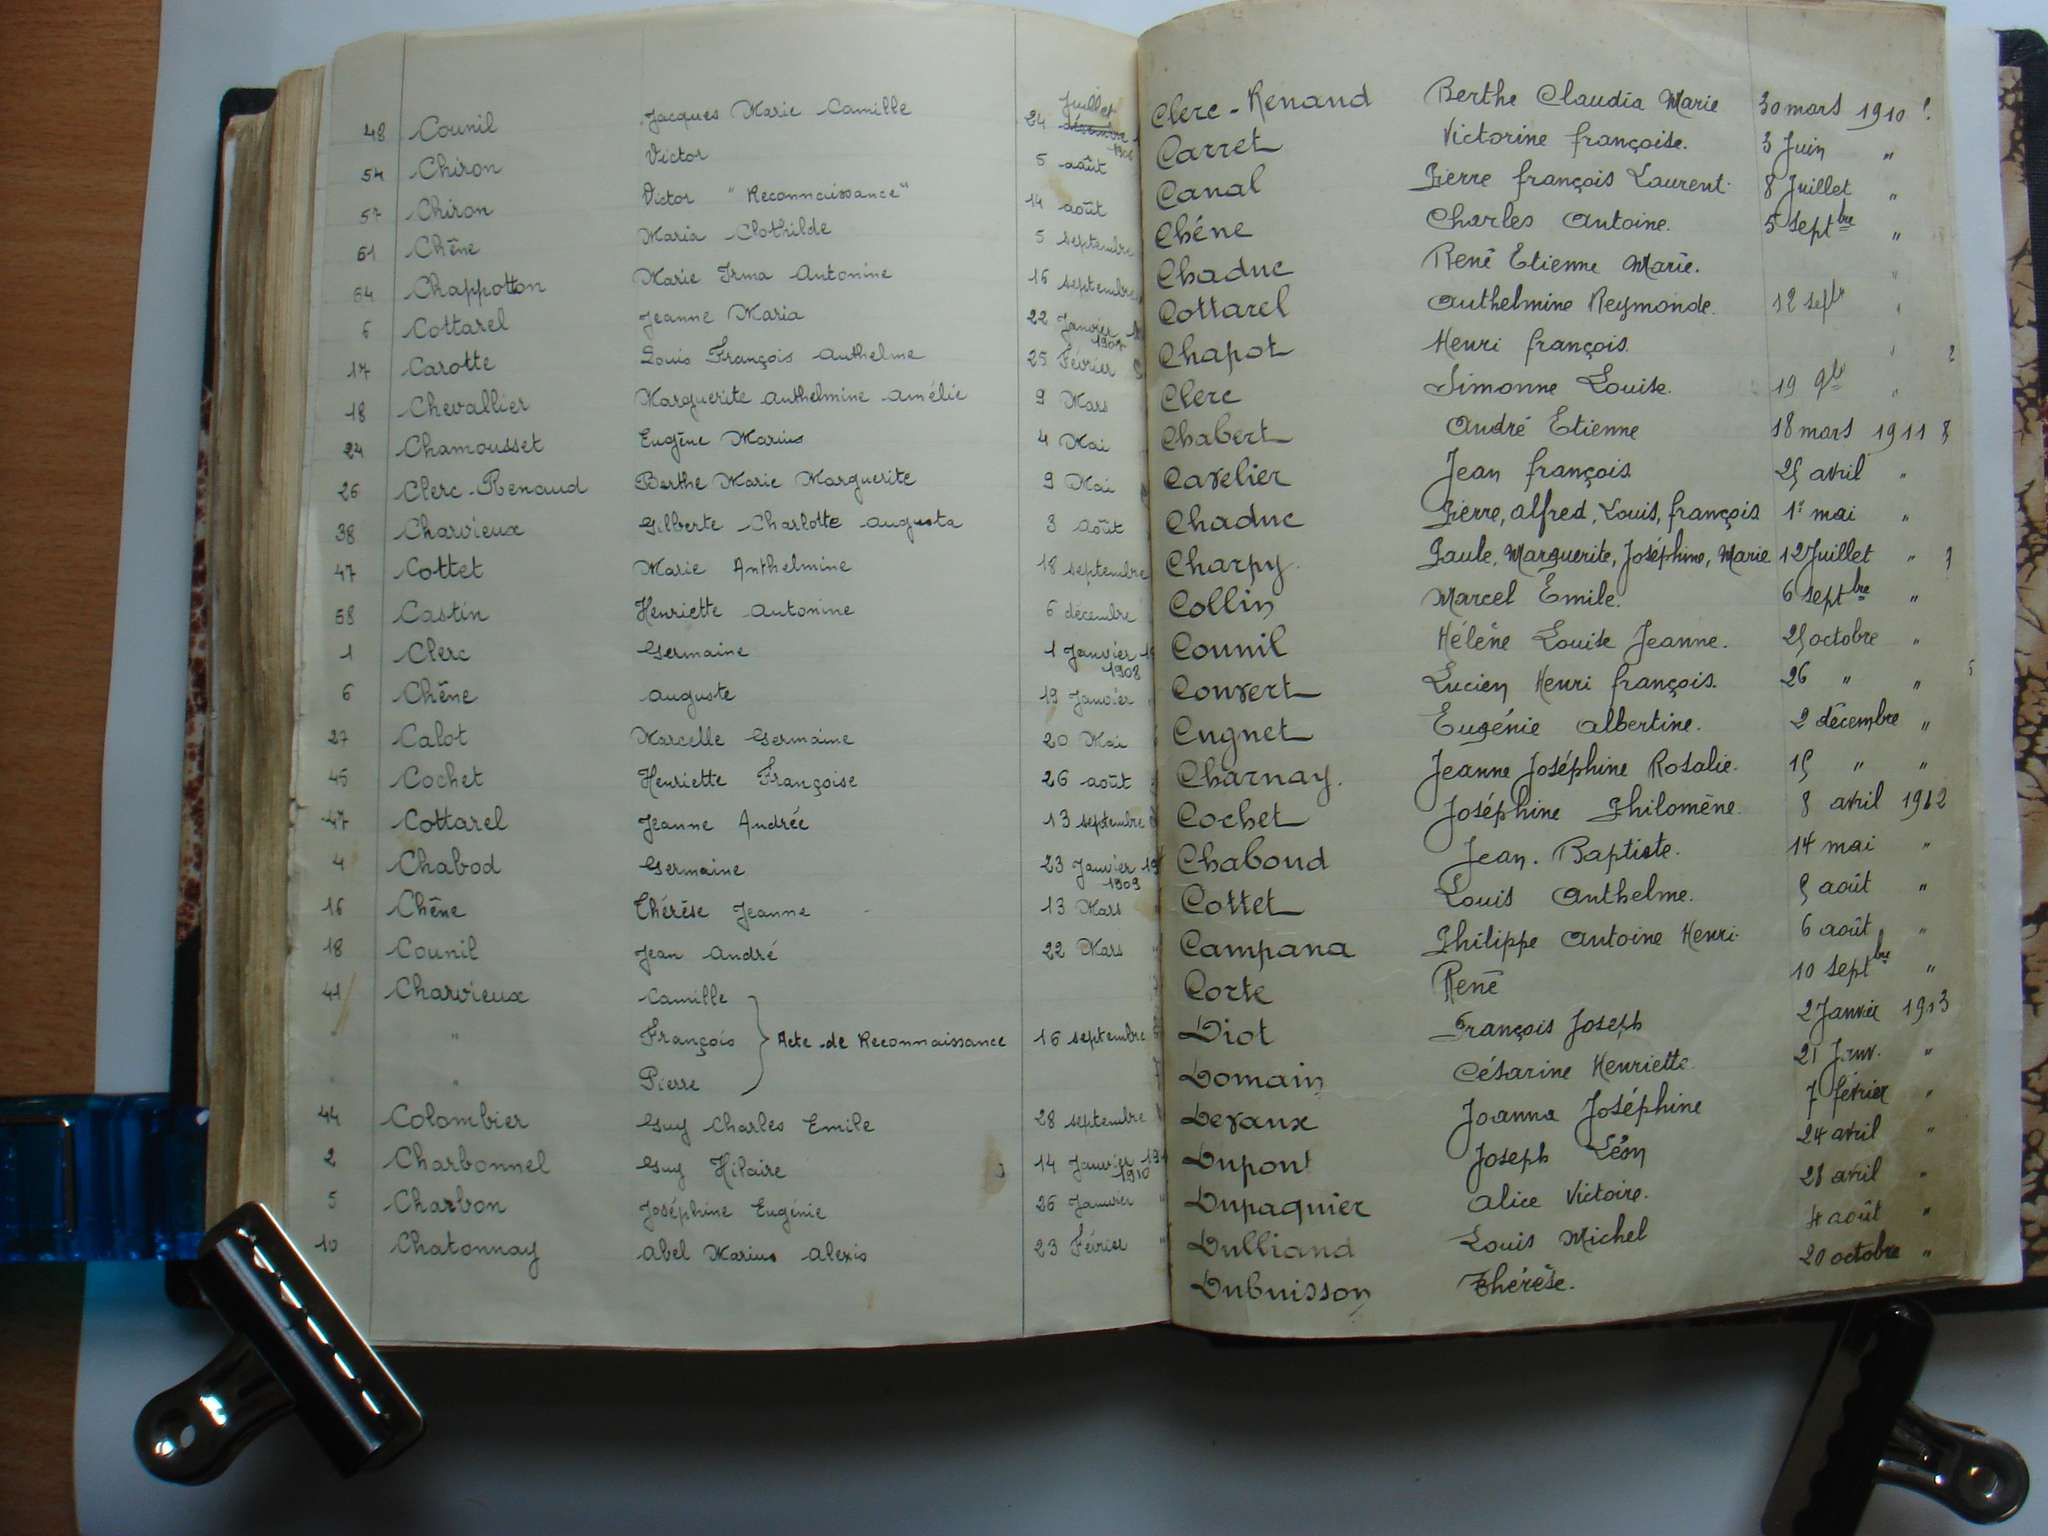 48 Counil Jacques Marie Camille 24 Juillet décembre 1906
54 Chiron Victor 5 août
57 Chiron Victor "Reconnaissance" 14 août
61 Chêne Maria Clothilde 5 septembre
64 Chappotton Marie Irma Antonine 16 septembre
6 Cottarel Jeanne Maria 22 Janvier 1907
17 Carotte Louis François Anthelme 25 Février
18 Chevallier Marguerite Anthelmine Amélie 9 Mars
24 Chamousset Eugène Marius 4 Mai
26 Clerc-Renaud Berthe Marie Marguerite 9 Mai
38 Charvieux Gilberte Charlotte Augusta 3 août
47 Cottet Marie Anthelmine 18 septembre
58 Castin Henriette Antonine 6 décembre
1 Clerc Germaine 1 Janvier 1908
6 Chêne Auguste 19 Janvier
27 Calot Marcelle Germaine 20 Mai
45 Cochet Henriette Françoise 26 août
47 Cottarel Jeanne Andrée 13 septembre
4 Chabod Germaine 23 Janvier 1909
16 Chêne Thérèse Jeanne 13 Mars
18 Counil Jean André 22 Mars
41 Charvieux Camille
" " François } Acte de Reconnaissance 16 septembre
" " Pierre
44 Colombier Guy Charles Emile 28 septembre
2 Charbonnel Guy Hilaire 14 Janvier 1910
5 Charbon Joséphine Eugénie 26 Janvier "
10 Chatonnay Abel Marius Alexis 23 Février "
Clerc-Renaud Berthe Claudia Marie 30 mars 1910
Carret Victorine françoise. 3 Juin "
Canal Pierre françois Laurent. 8 Juillet "
Chéne Charles Antoine. 5 septbre "
Chaduc René Etienne Marie. "
Cottarel Anthelmine Reymonde. 12 septbre "
Chapot Henri françois. "
Clerc Simonne Louise. 19 9bre "
Chabert André Etienne 18 mars 1911
Cavelier Jean françois. 25 avril "
Chaduc Pierre, Alfred, Louis, françois 1er mai "
Charpy. Paule, Marguerite, Joséphine, Marie. 12 Juillet "
Collin Marcel Emile. 6 septbre "
Counil Hélène Louise Jeanne. 25 octobre "
Convert Lucien Henri françois. 26 " "
Cugnet Eugénie Albertine. 2 décembre "
Charnay. Jeanne Joséphine Rosalie. 15 " "
Cochet Joséphine Philomène. 8 avril 1912
Chaboud Jean. Baptiste. 14 mai "
Cottet Louis Anthelme. 5 août "
Campana Philippe Antoine Henri. 6 août "
Corte René 10 septbre "
Diot François Joseph 2 Janvier 1913
Domain Césarine Henriette. 21 Janv. "
Devaux Joanna Joséphine 7 février "
Dupont Joseph Léon 24 avril "
Dupaquier Alice Victoire. 28 avril "
Dulliand Louis Michel 4 août "
Dubuisson Thérèse. 20 octobre "